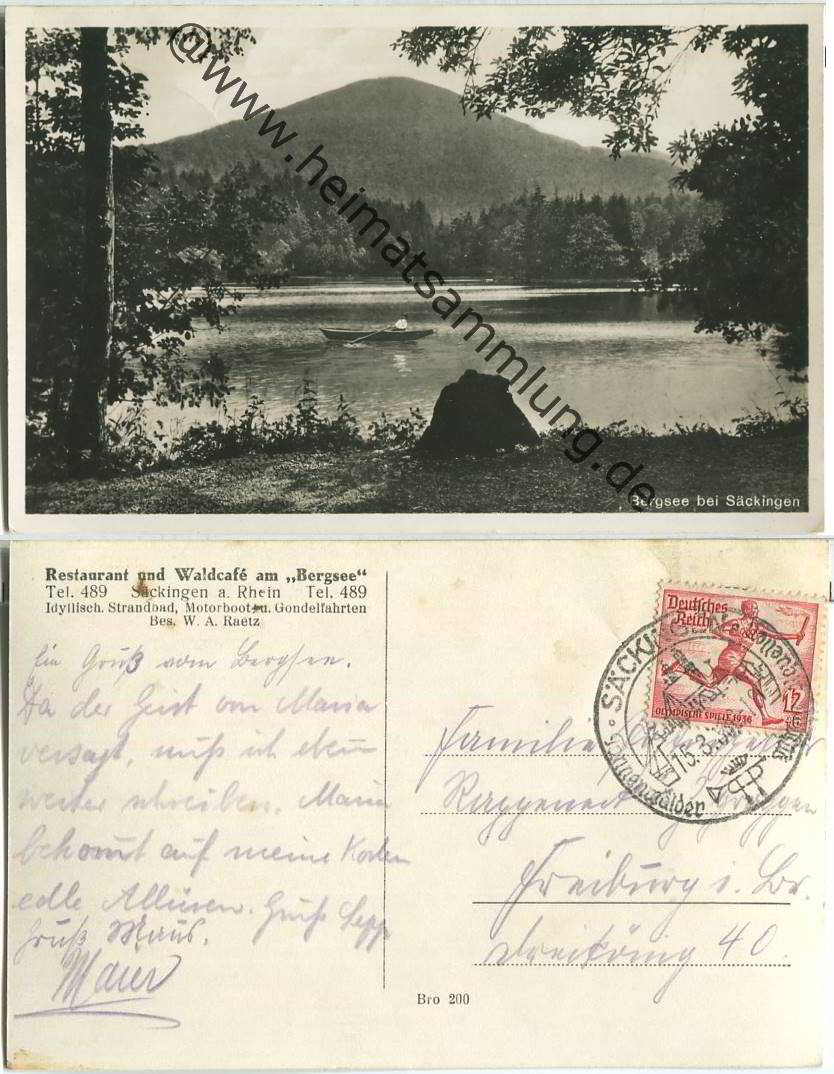 @www.heimatsammlung.de
Bergsee bei Säckingen
Restaurant und Waldcafé am „Bergsee“
Tel. 489 Säckingen a. Rhein Tel. 489
Idyllisch. Strandbad, Motorboot- u. Gondelfahrten
Bes. W. A. Raetz
Ein Gruß vom Bergsee.
Da der Geist von Maria
versagt, muß ich eben
weiter schreiben. Maria
bekommt auf meine Kosten
edle Allüren. Gruß Sepp
Gruß Maus.
Maier
Deutsches
Reich
12
OLYMPISCHE SPIELE 1936
SÄCKINGEN
15.8.
Familie
Freiburg i. Br.
Dreikönig 40.
Bro 200